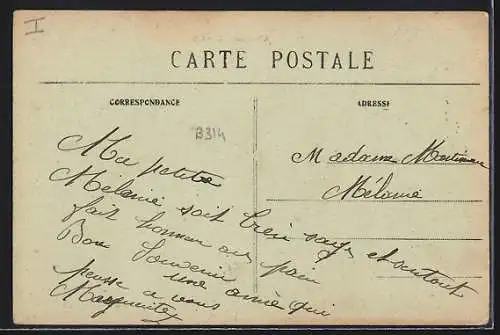 I
CARTE POSTALE
CORRESPONDANCE
ADRESSE
B314
Ma petite
Mélanie soit bien sage et surtout
fait honneur au pain
Bon Souvenir
une amie qui
pense a vous
Marguerite
Madame
Mélanie